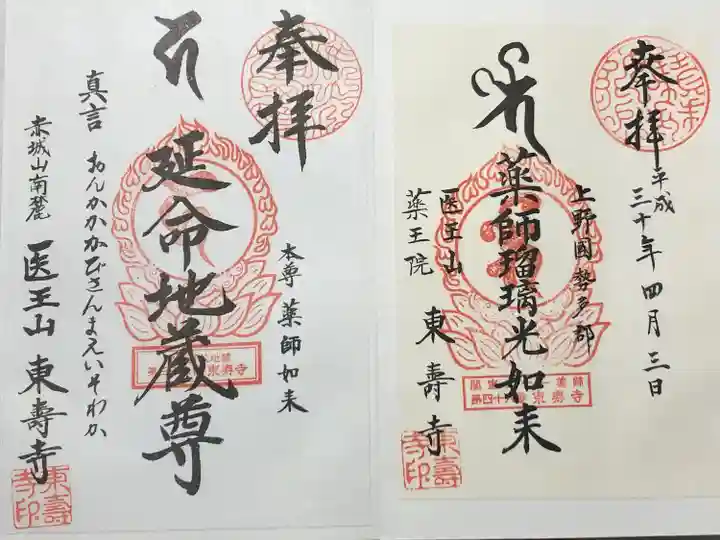 奉拝
平成三十年四月三日
上野國勢多郡
薬師瑠璃光如来
医王山
薬王院
東壽寺
東壽寺印
奉拝
本尊 薬師如来
延命地蔵尊
真言 おんかかかびさんまえいそわか
赤城山南麓 医王山 東壽寺
東壽寺印